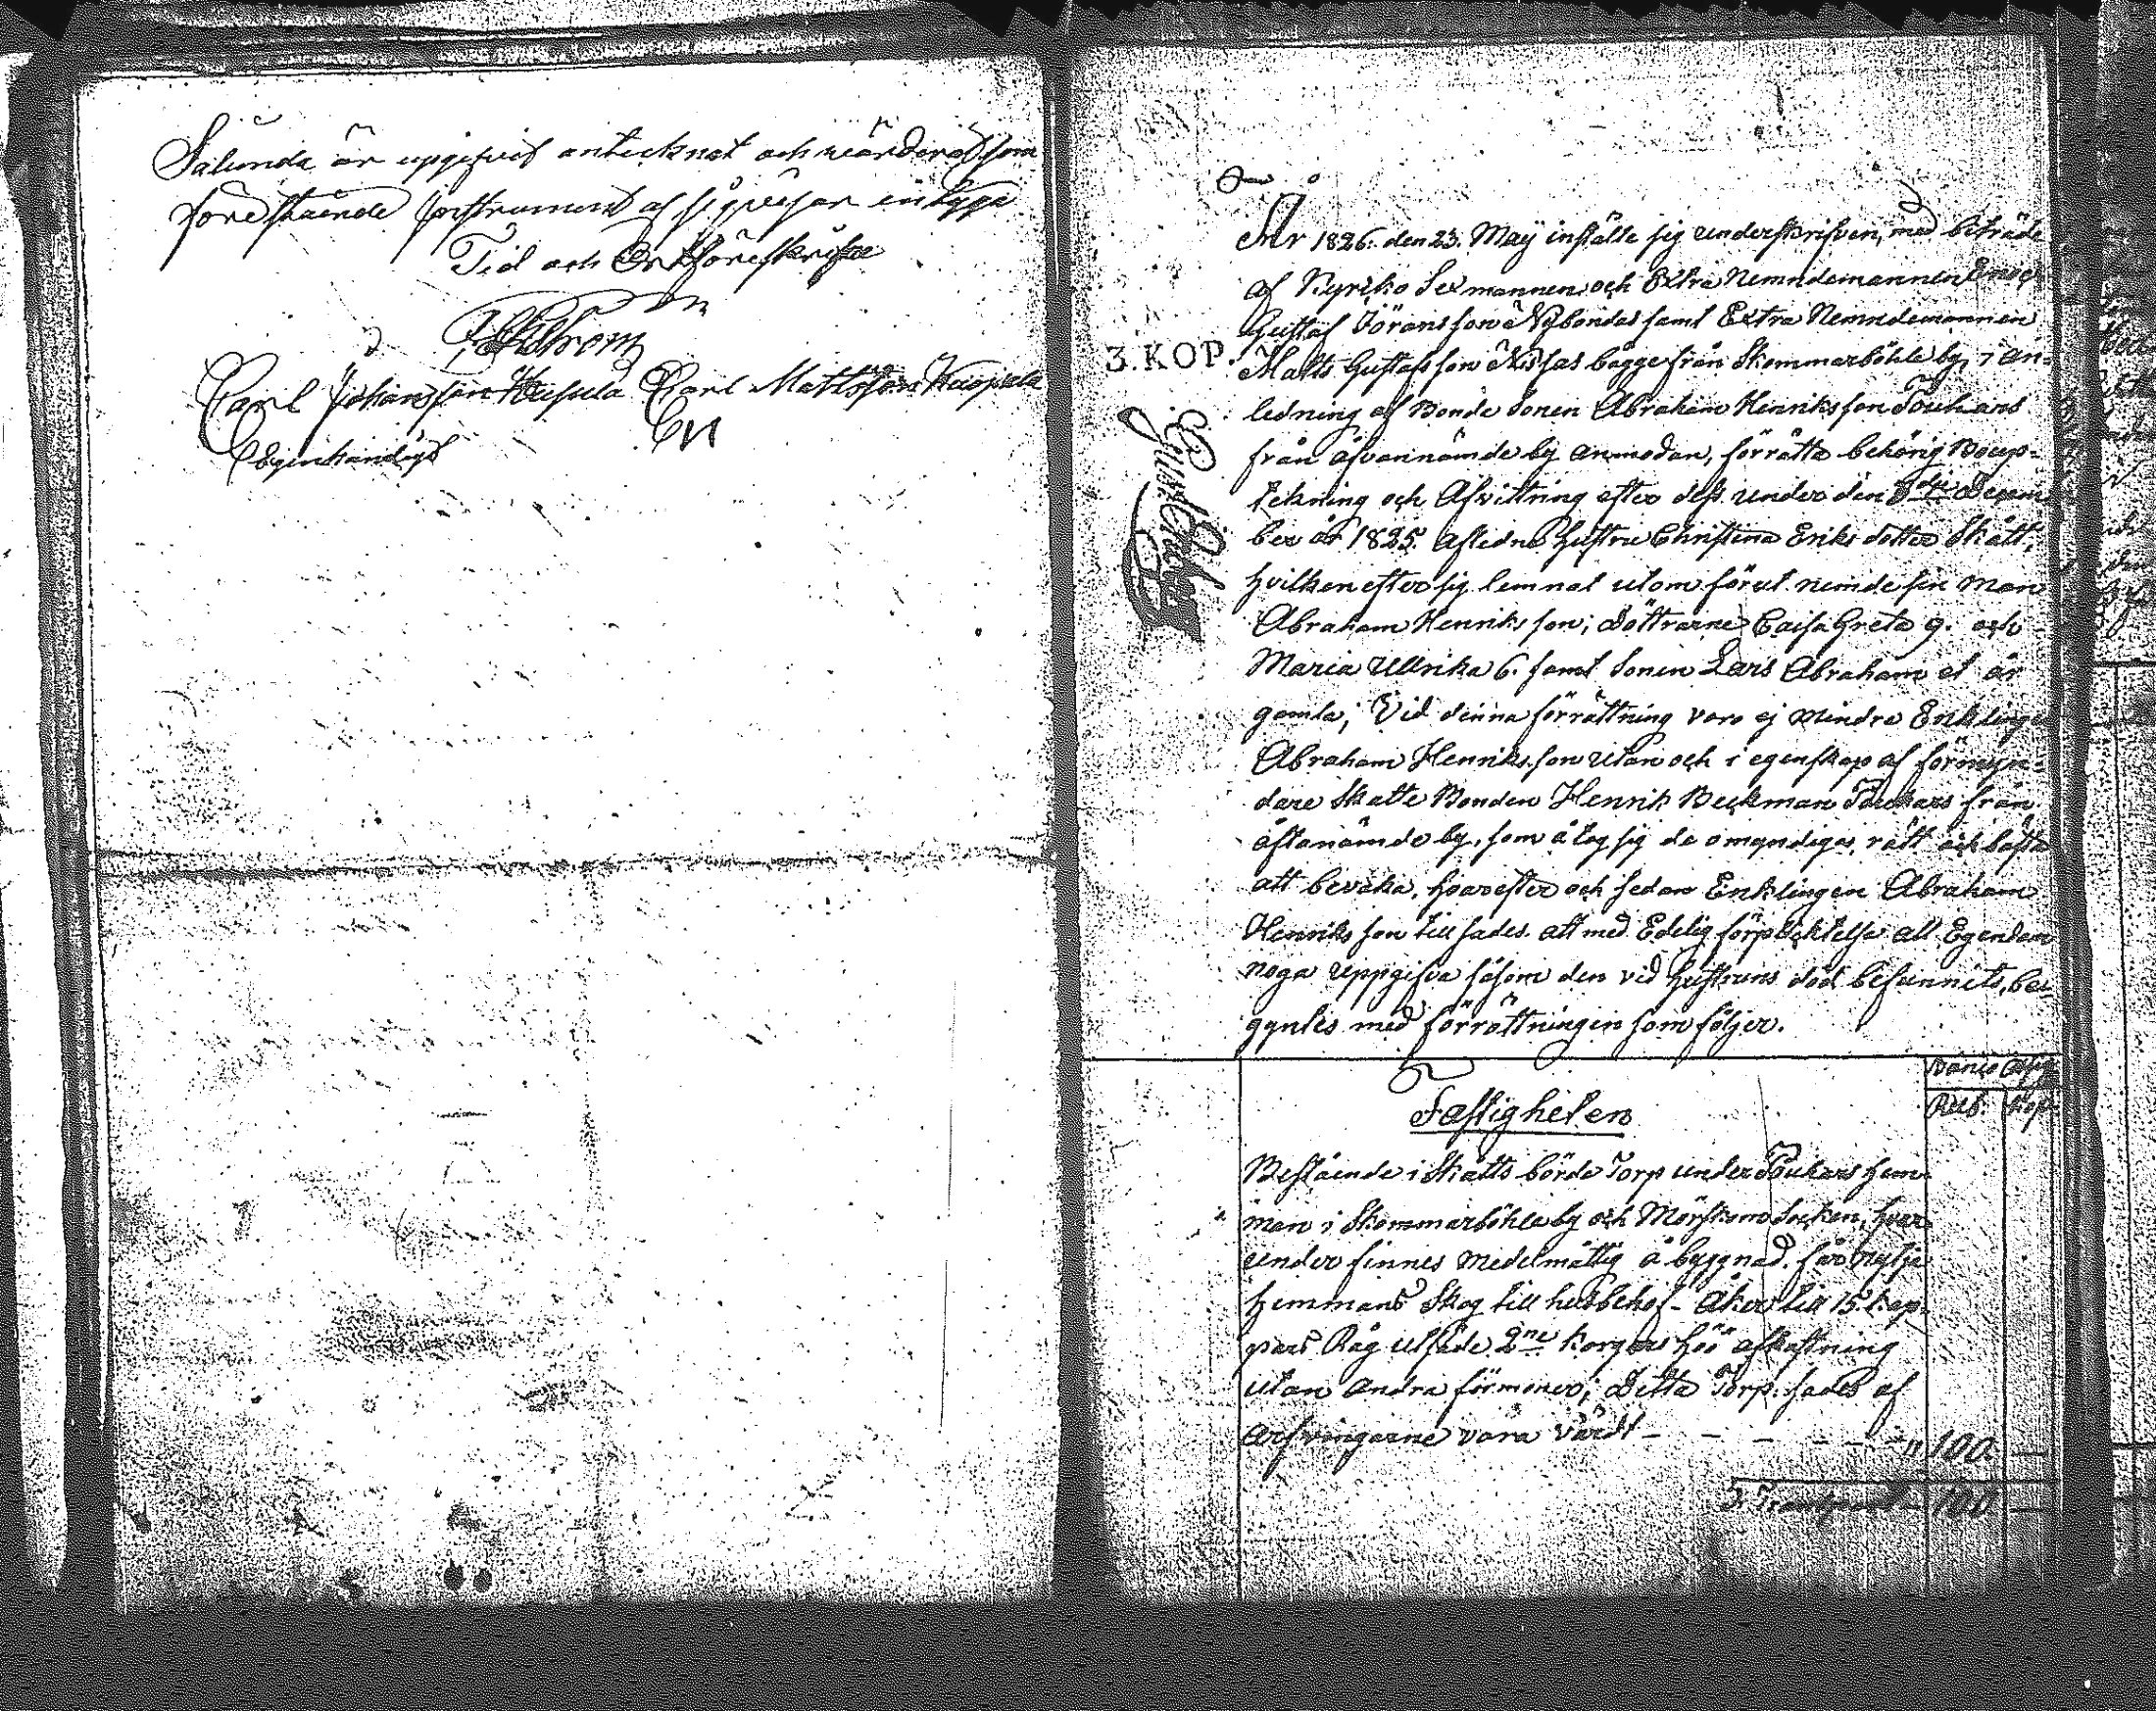 Sålunda är upgifvit antecknat och värderat som
förestående Instrument af sig visar intyga
Tid och Ort föreskrifne
Carl Johansson Husula Carl Mattsson Kuopila
Egenhändigt
År 1826. den 23. Maÿ instälte sig underskrifven, med biträde
af Kyrko Sexmannen och Extra Nemndemannen
Gustaf Jöransson Nybondas samt Extra Nemndemannen
3.KOP.
Matts Gustafsson Nissas bägge från Skommarböhle by, i an-
ledning af Bonde Sonen Abraham Henriksson Toukars
från åfvannämde by anmodan, förrätta behörig Boup-
tekning och Afvittring efter dess under den Decem
ber år 1825. aflidne Hustru Christina Eriks dotter Skått,
hvilken efter sig lemnat utom förut nemde sin man
Abraham Henriksson; Döttrarne Caisa Greta 9. och
Maria Ullrika 6. samt Sonen Lars Abraham et år
gamla; Vid denna förrättning voro ej mindre Enklingen
Abraham Henriksson utan och i egenskap af förmyn-
dare Skatte Bonden Henrik Beckman Toukars från
åftanämde by, som åtog sig de omyndiges rätt och bästa
att bevaka, hvarefter och sedan Enklingen Abraham
Henriksson till sades att med Edelig förpliktelse all Egendom
noga uppgifva såsom den vid Hustruns död befunnits, be-
gyntes med förrättningen som följer.
Banco Assig
Rub. Kop.
Fastigheten
Bestående i Skatts börde Torp under Toukars hem-
man i Skommarböhle by och Mörskom Socken, hvar
under finnes medelmåttig åbyggnad, för
hemmans skog till husbehof - åker till 15 kap-
pars Råg utsäde 2ne korgars höö afkastning
utan andra förmoner; Detta Torp sades af
arfvingarne vara värdt - - - - - " 100. —
Transport - 100 —